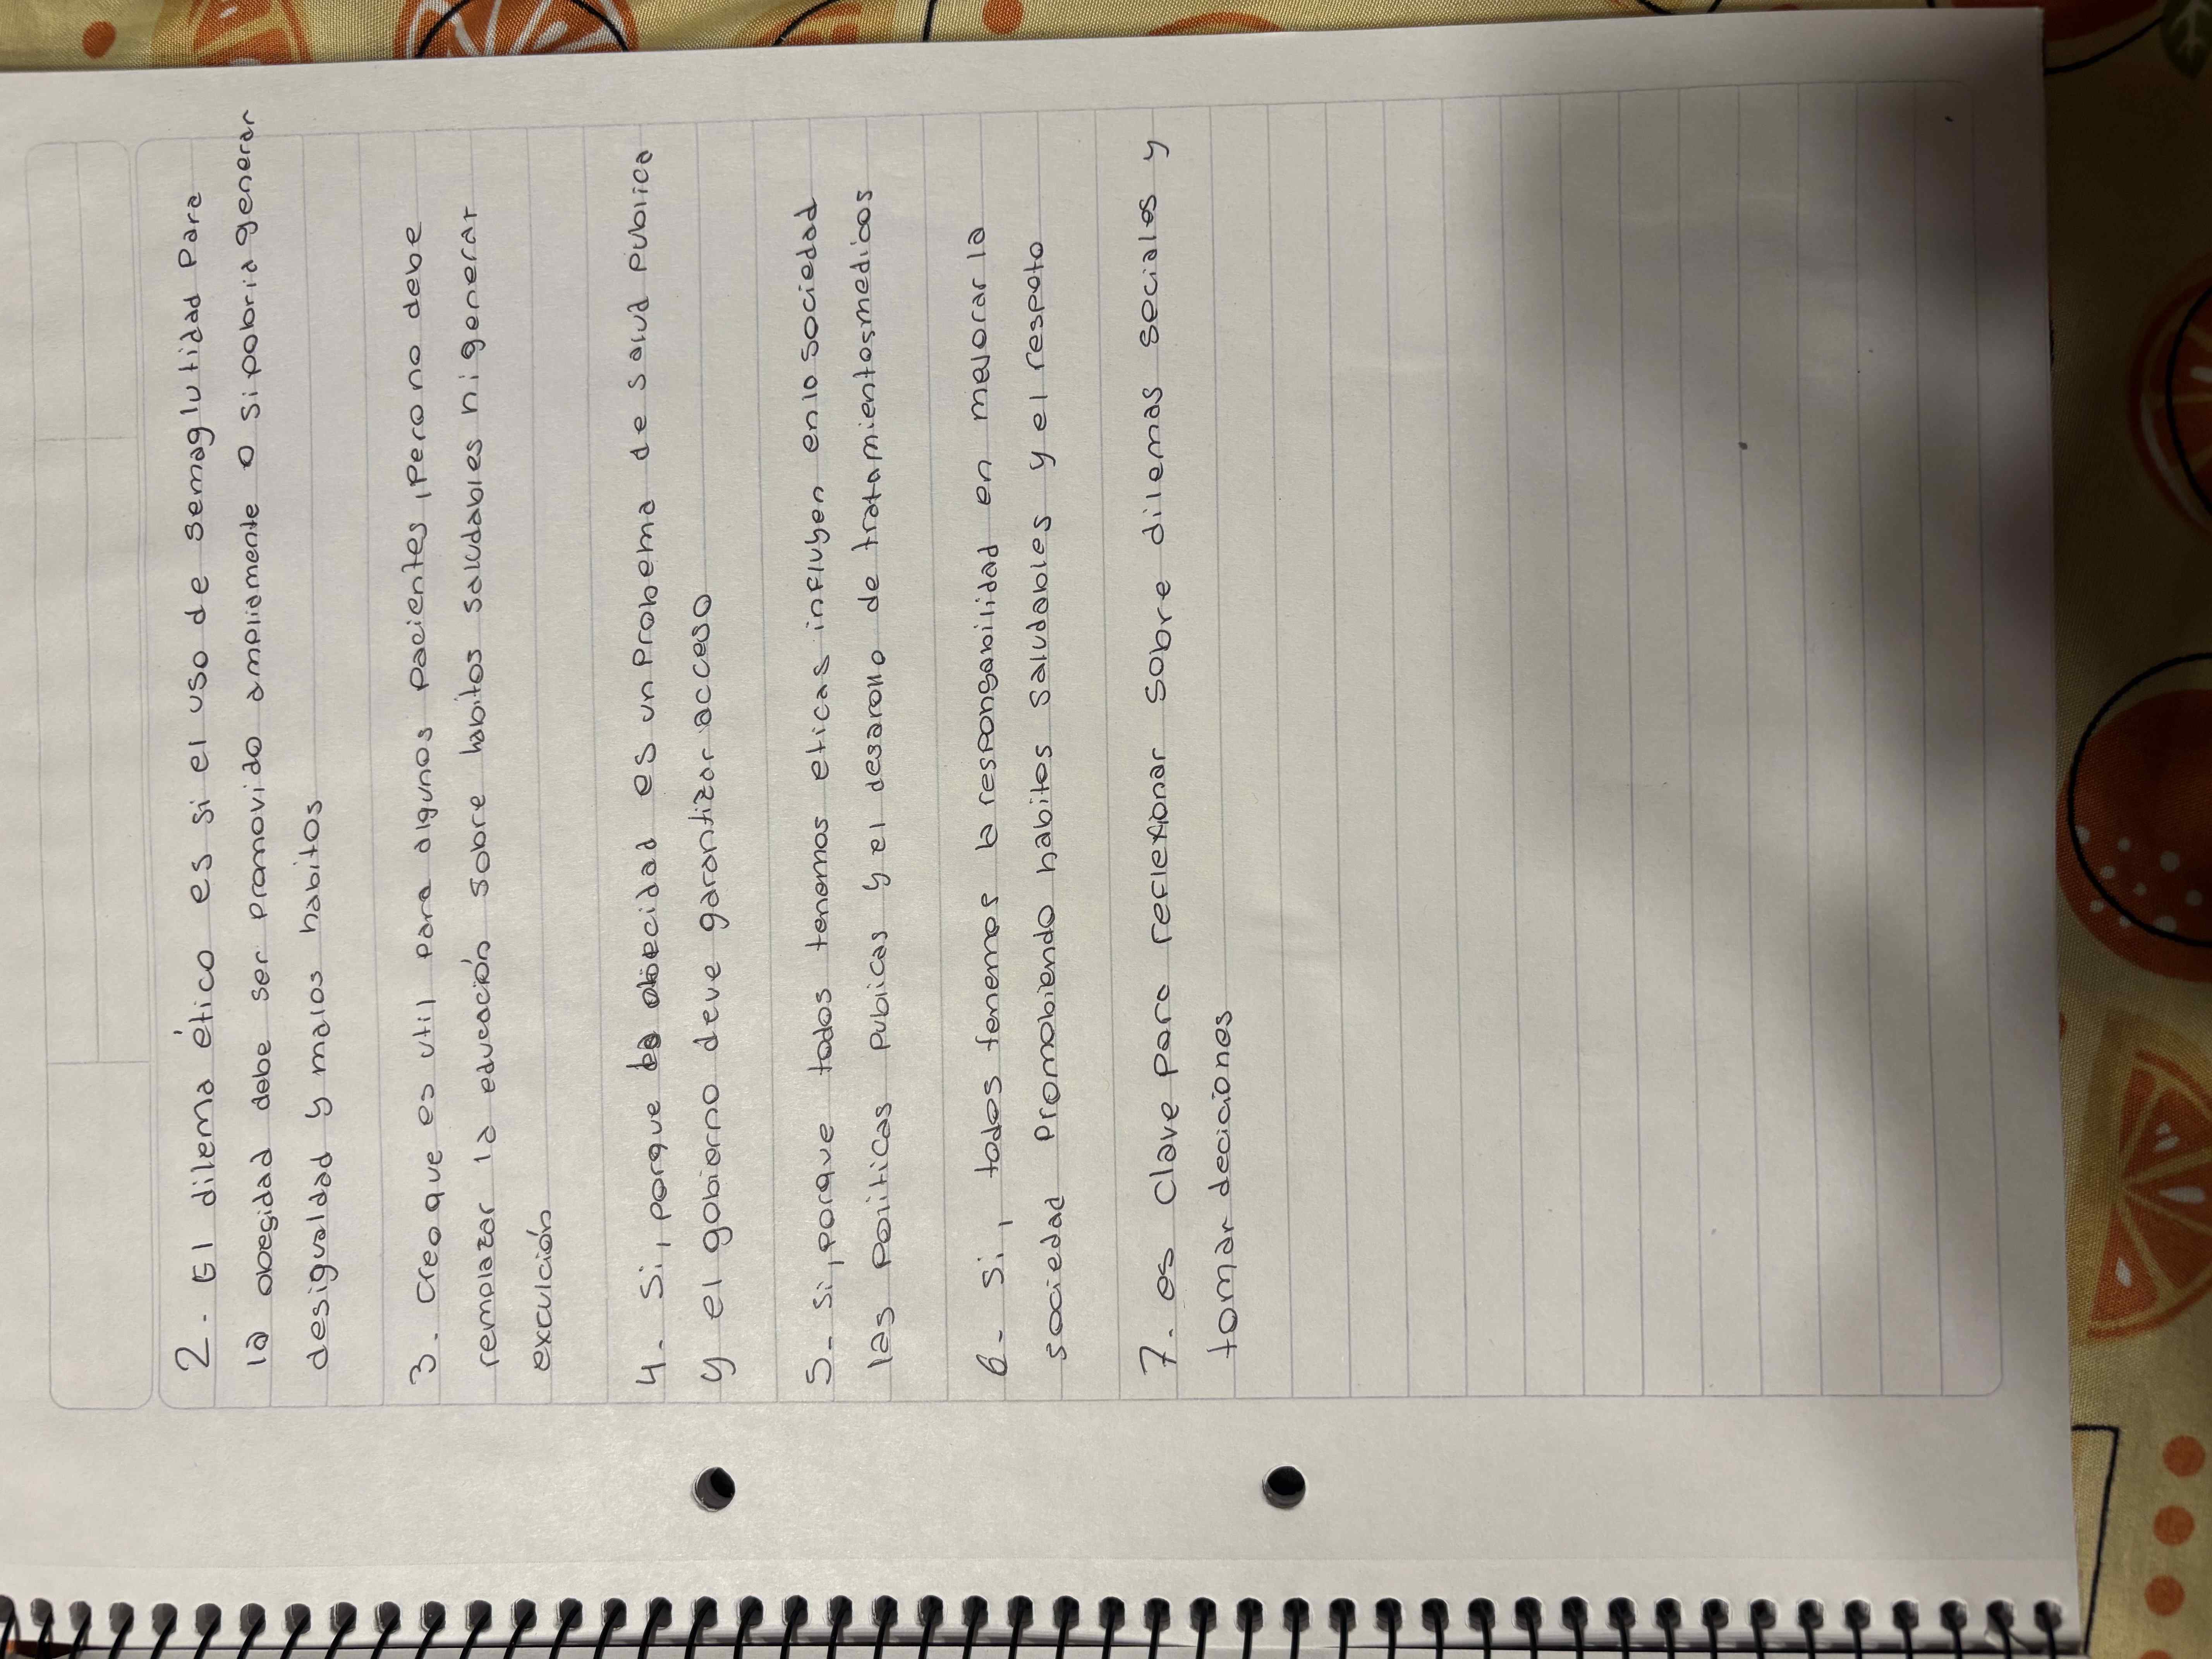 2. El dilema ético es si el uso de semaglutidad Para
la obecidad debe ser promovido ampliamente o si pobria generar
desigualdad y malos habitos
3. Creo que es util para algunos pacientes, Pero no debe
remplazar la educación sobre habitos saludables ni generar
exculción
4. Si, porque la obecidad es un Probema de salud publica
y el gobierno deve garantizar acceso
5- Si, porque todos tenemos eticas influyen en lo sociedad
las politicas publicas y el desarollo de tratamientos medicos
6- Si, todos tenemos la responsabilidad en mejorar la
sociedad Promobiendo habitos saludables y el respeto
7. es clave para reflexionar sobre dilemas sociales y
tomar deciciones